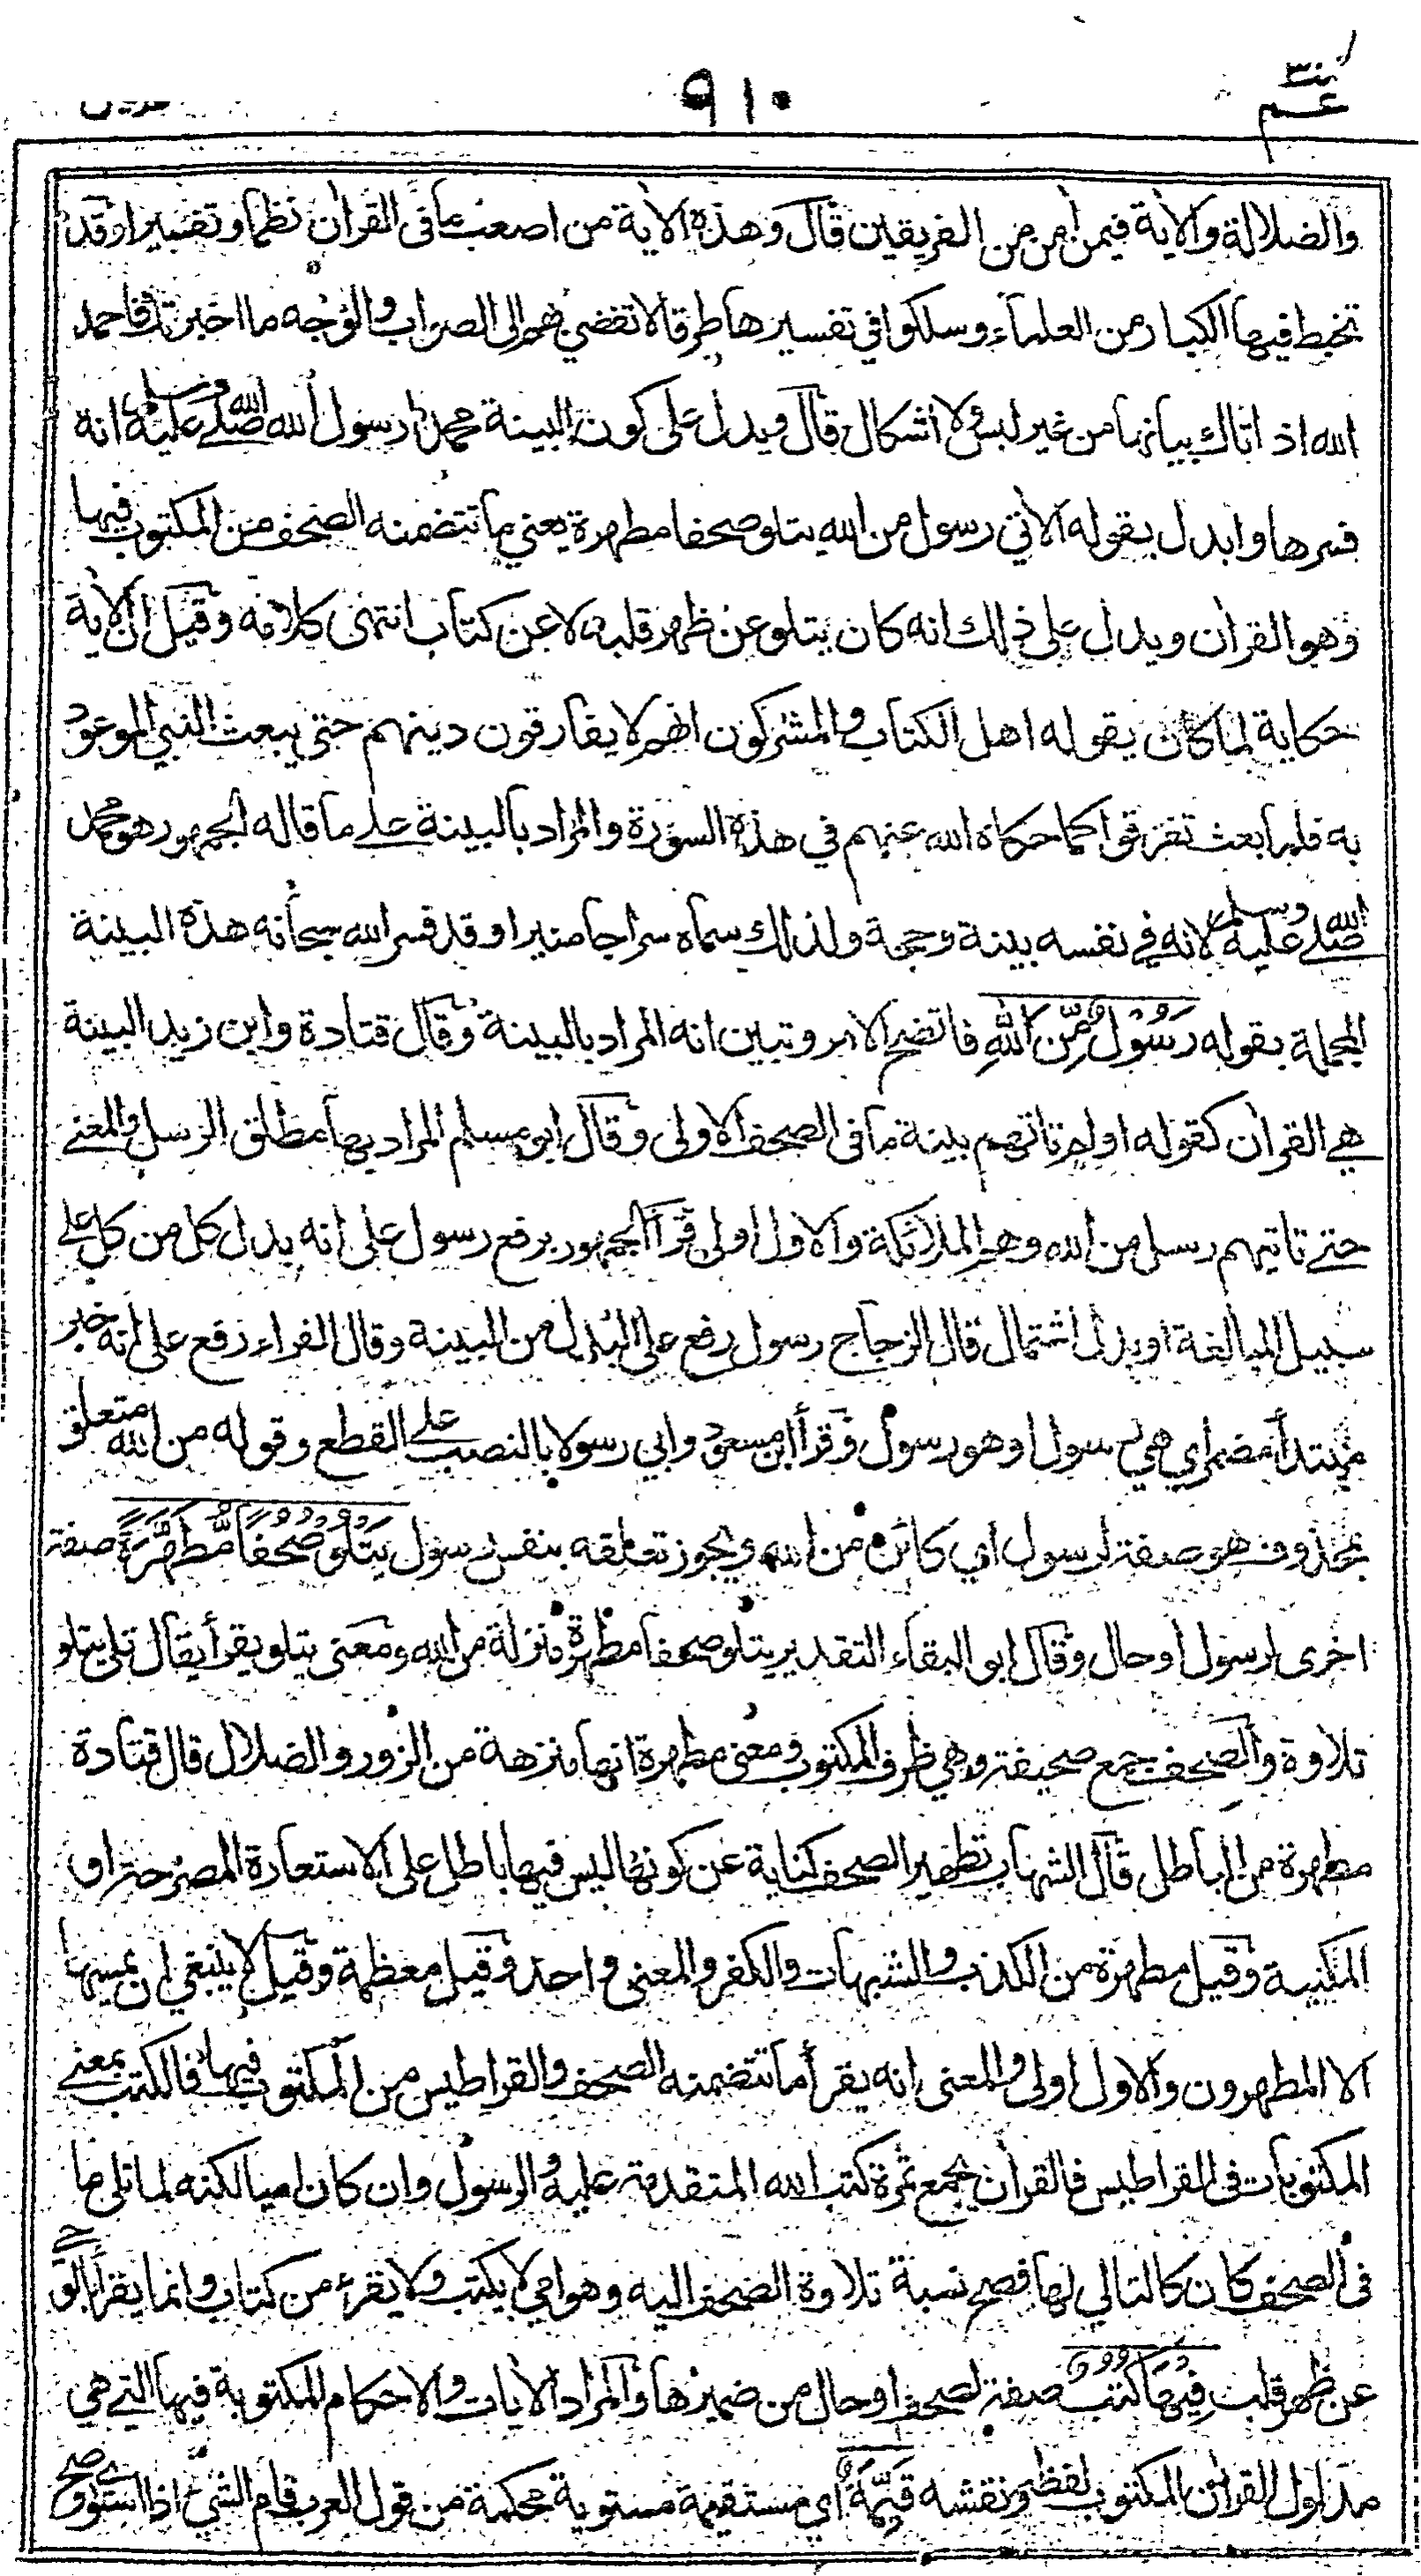 عم
٩١٠
والضلالة والآية فيمن آمن من الفريقين قال وهذه الآية من اصعب ما في القرآن نظما وتفسيرا وقد
تخبط فيها الكبار من العلماء وسلكوا في تفسيرها طرقا لا تفضي بهم الى الصواب والوجه ما اخبرتك فاحمد
الله اذ اتاك بيانها من غير لبس ولا اشكال قال ويدل على كون البينة محمدا رسول الله صلى الله عليه وسلم انه
فسرها وابدل بقوله الآتي رسول من الله يتلو صحفا مطهرة يعني ما تتضمنه الصحف من المكتوب فيها
وهو القرآن ويدل على ذلك انه كان يتلو عن ظهر قلبه لا عن كتاب انتهى كلامه وقيل ان الآية
حكاية لما كان يقوله اهل الكتاب والمشركون انهم لا يفارقون دينهم حتى يبعث النبي الموعود
به فلما بعث تفرقوا كما حكاه الله عنهم في هذه السورة والمراد بالبينة على ما قاله الجمهور هو محمد
صلى الله عليه وسلم لانه في نفسه بينة وحجة ولذلك سماه سراجا منيرا وقد فسر الله سبحانه هذه البينة
المجملة بقوله رَسُوْلٌ مِّنَ اللّٰهِ فاتضح الامر وتبين انه المراد بالبينة وقال قتادة وابن زيد البينة
هي القرآن كقوله اولم تاتهم بينة ما في الصحف الاولى وقال ابو مسلم المراد بها مطلق الرسل والمعنى
حتى تاتيهم رسل من الله وهم الملائكة والاول اولى قرأ الجمهور برفع رسول على انه بدل كل من كل على
سبيل المبالغة او بدل اشتمال قال الزجاج رسول رفع على البدل من البينة وقال الفراء رفع على انه خبر
مبتدأ مضمر اي هي رسول او هو رسول وقرأ ابن مسعود وابي رسولا بالنصب على القطع وقوله من الله متعلق
بمحذوف هو صفة لرسول اي كائن من الله ويجوز تعلقه بنفس رسول يَتْلُوْ صُحُفًا مُّطَهَّرَةً صفة
اخرى لرسول او حال وقال ابو البقاء التقدير يتلو صحفا مطهرة منزلة من الله ومعنى يتلو يقرأ يقال تلى يتلو
تلاوة والصحف جمع صحيفة وهي ظرف المكتوب ومعنى مطهرة انها منزهة من الزور والضلال قال قتادة
مطهرة من الباطل قال الشهاب تطهير الصحف كناية عن كونها ليس فيها باطل على الاستعارة المصرحة او
المكنية وقيل مطهرة من الكذب والشبهات والكفر والمعنى واحد وقيل معظمة وقيل لا ينبغي ان يمسها
الا المطهرون والاول اولى والمعنى انه يقرأ ما تتضمنه الصحف والقراطيس من المكتوب فيها فالكتب بمعنى
المكتوبات في القراطيس فالقرآن يجمع ثمرة كتب الله المتقدمة عليه والرسول وان كان اميا لكنه لما تلى ما
في الصحف كان كالتالي لها فصح نسبة تلاوة الصحف اليه وهو امي لا يكتب ولا يقرء من كتاب وانما يقرأ بالوحي
عن ظهر قلب فِيْهَا كُتُبٌ صفة لصحفا او حال من ضميرها والمراد الآيات والاحكام المكتوبة فيها التي هي
مدلول القرآن المكتوب لفظه ونقشه قَيِّمَةٌ اي مستقيمة مستوية محكمة من قول العرب قام الشيء اذا استوى وصح